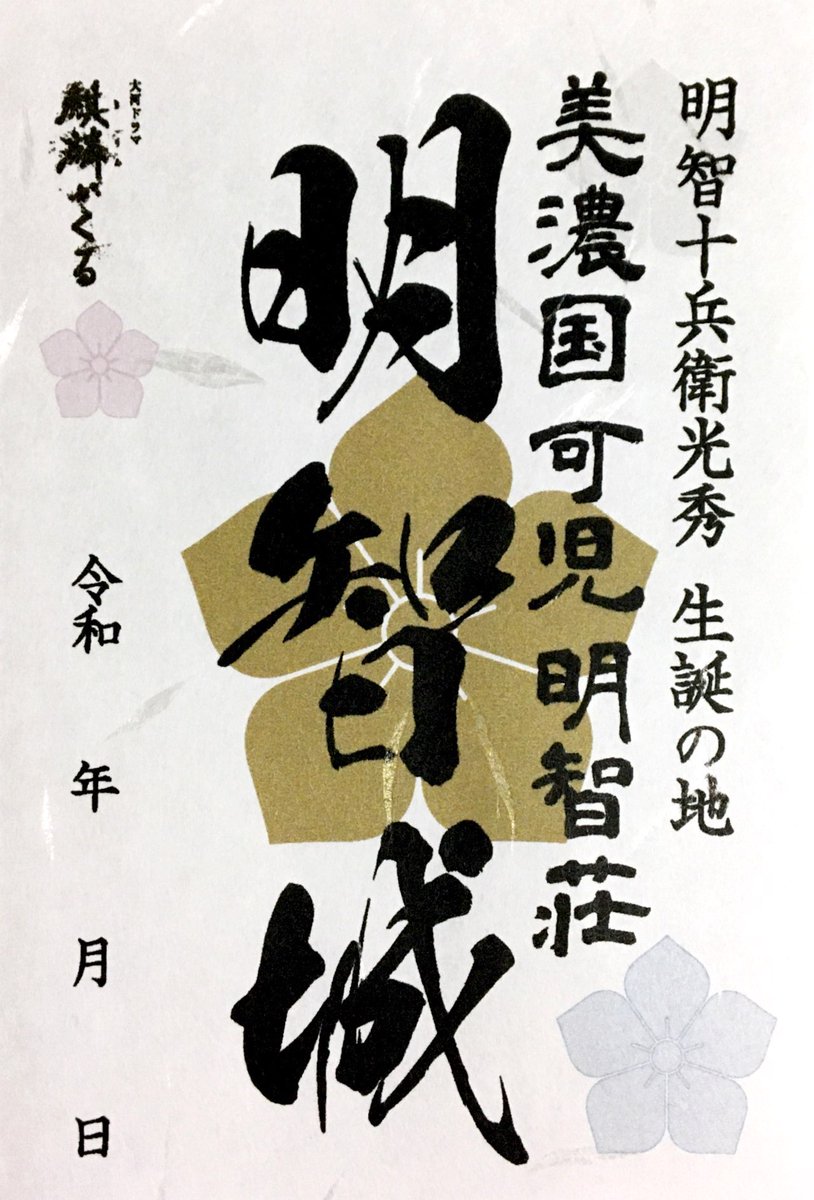 明智十兵衛光秀 生誕の地
美濃国可児明智荘
明智城
大河ドラマ
麒麟がくる
令和 年 月 日